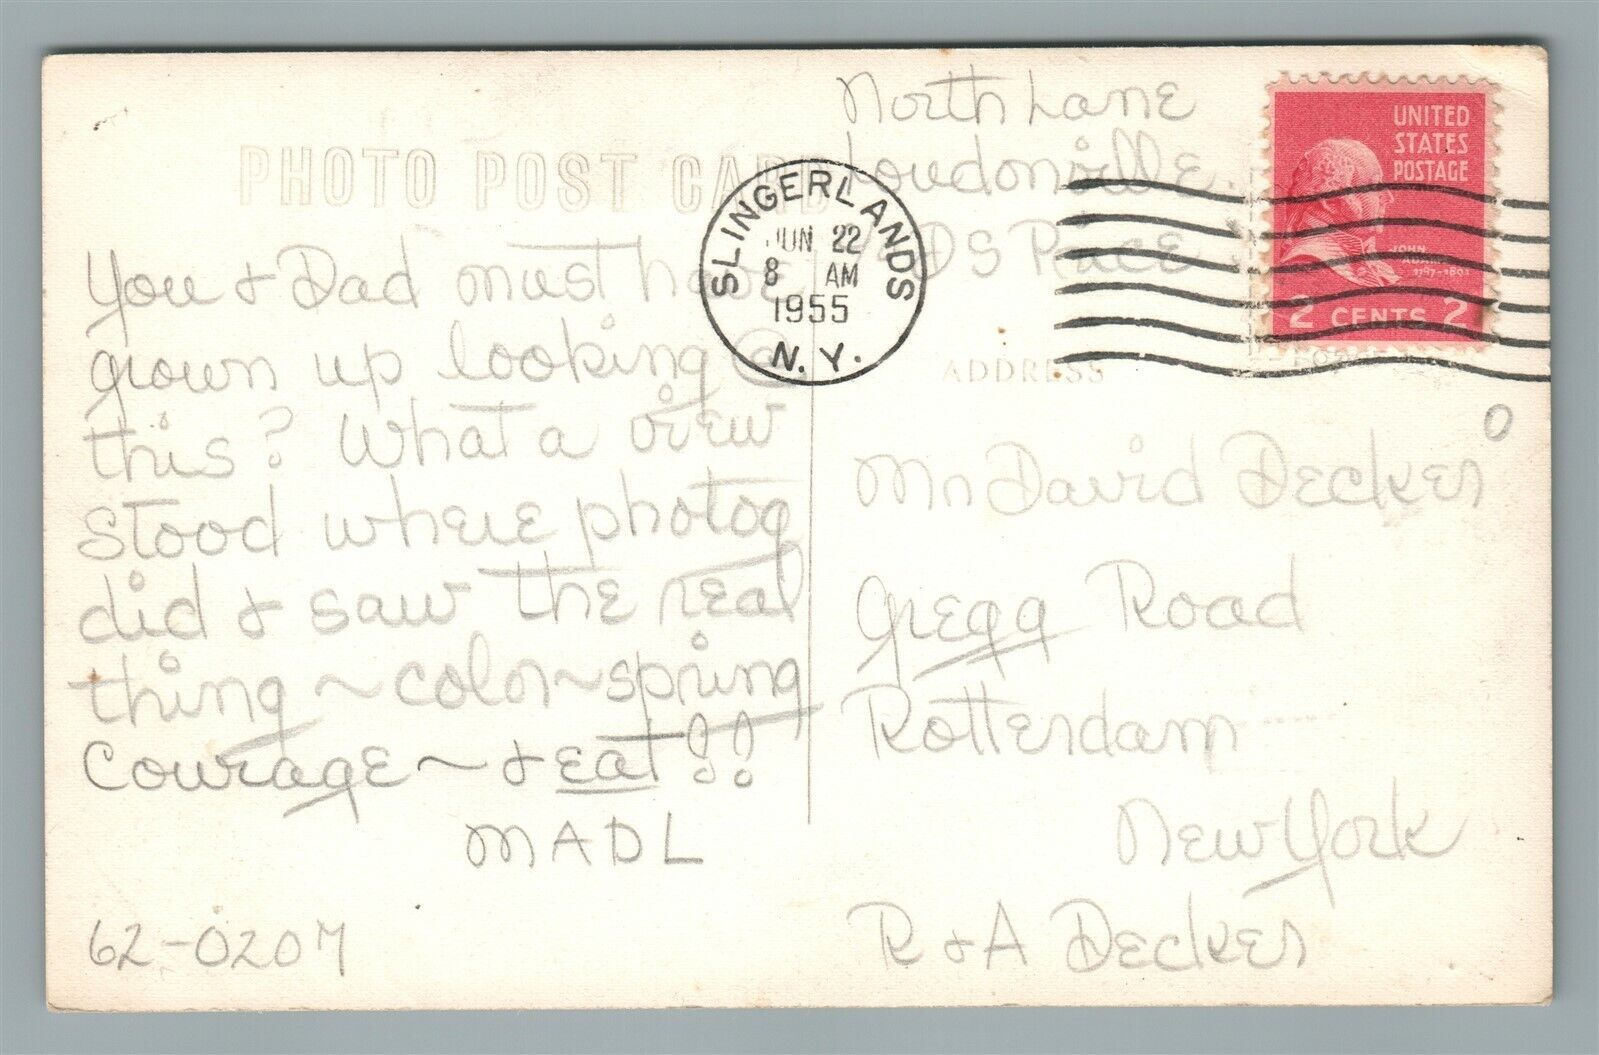 PHOTO POST CARD
You & Dad must have
grown up looking @
this? What a view
Stood where photog
did & saw the real
thing ~ color ~ spring
Courage ~ & eat!!
MADL
62-0207
North Lane
Loudonville
DS Race
SLINGERLANDS
JUN 22
8 AM
1955
N. Y.
UNITED
STATES
POSTAGE
JOHN
ADAMS
1797-1801
2 CENTS 2
ADDRESS
Mr David Decker
Gregg Road
Rotterdam
New York
R & A Decker